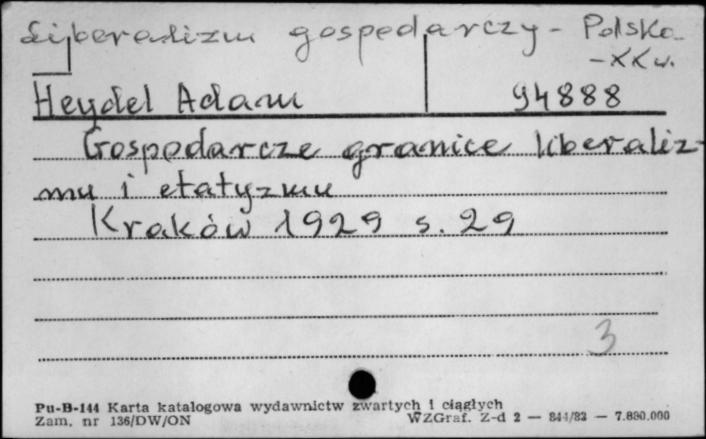 Liberalizm gospodarczy - Polska
- XX w.
Heydel Adam 94888
Gospodarcze granice liberaliz-
mu i etatyzmu
Kraków 1929 s. 29
3
Pu-B-144 Karta katalogowa wydawnictw zwartych i ciągłych
Zam. nr 136/DW/ON WZGraf. Z-d 2 — 844/82 — 7.890.000